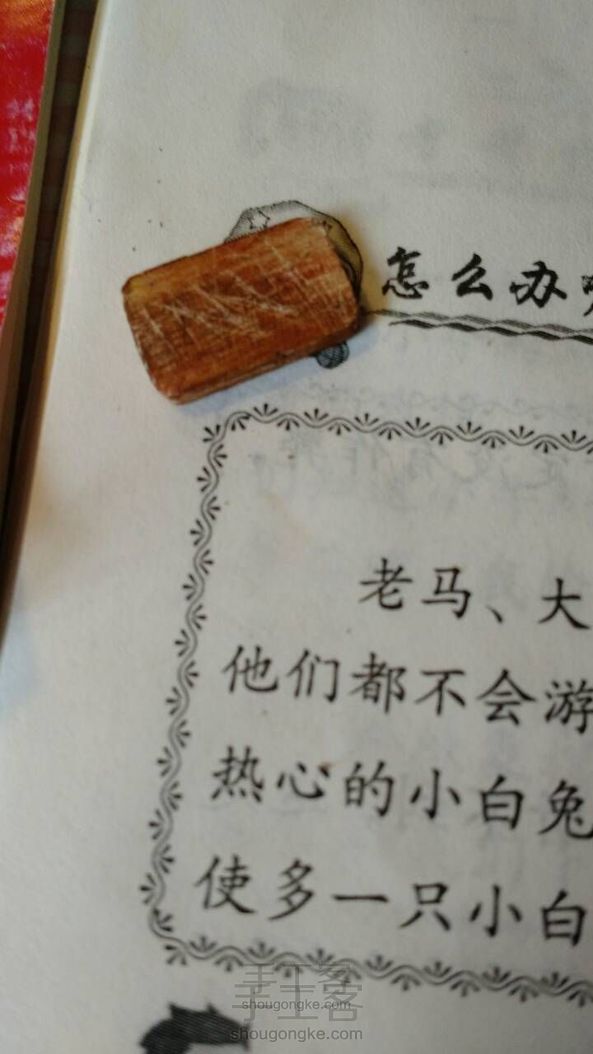 怎么办
老马、大
他们都不会游
热心的小白兔
使多一只小白
手工客
shougongke.com
shougongke.com